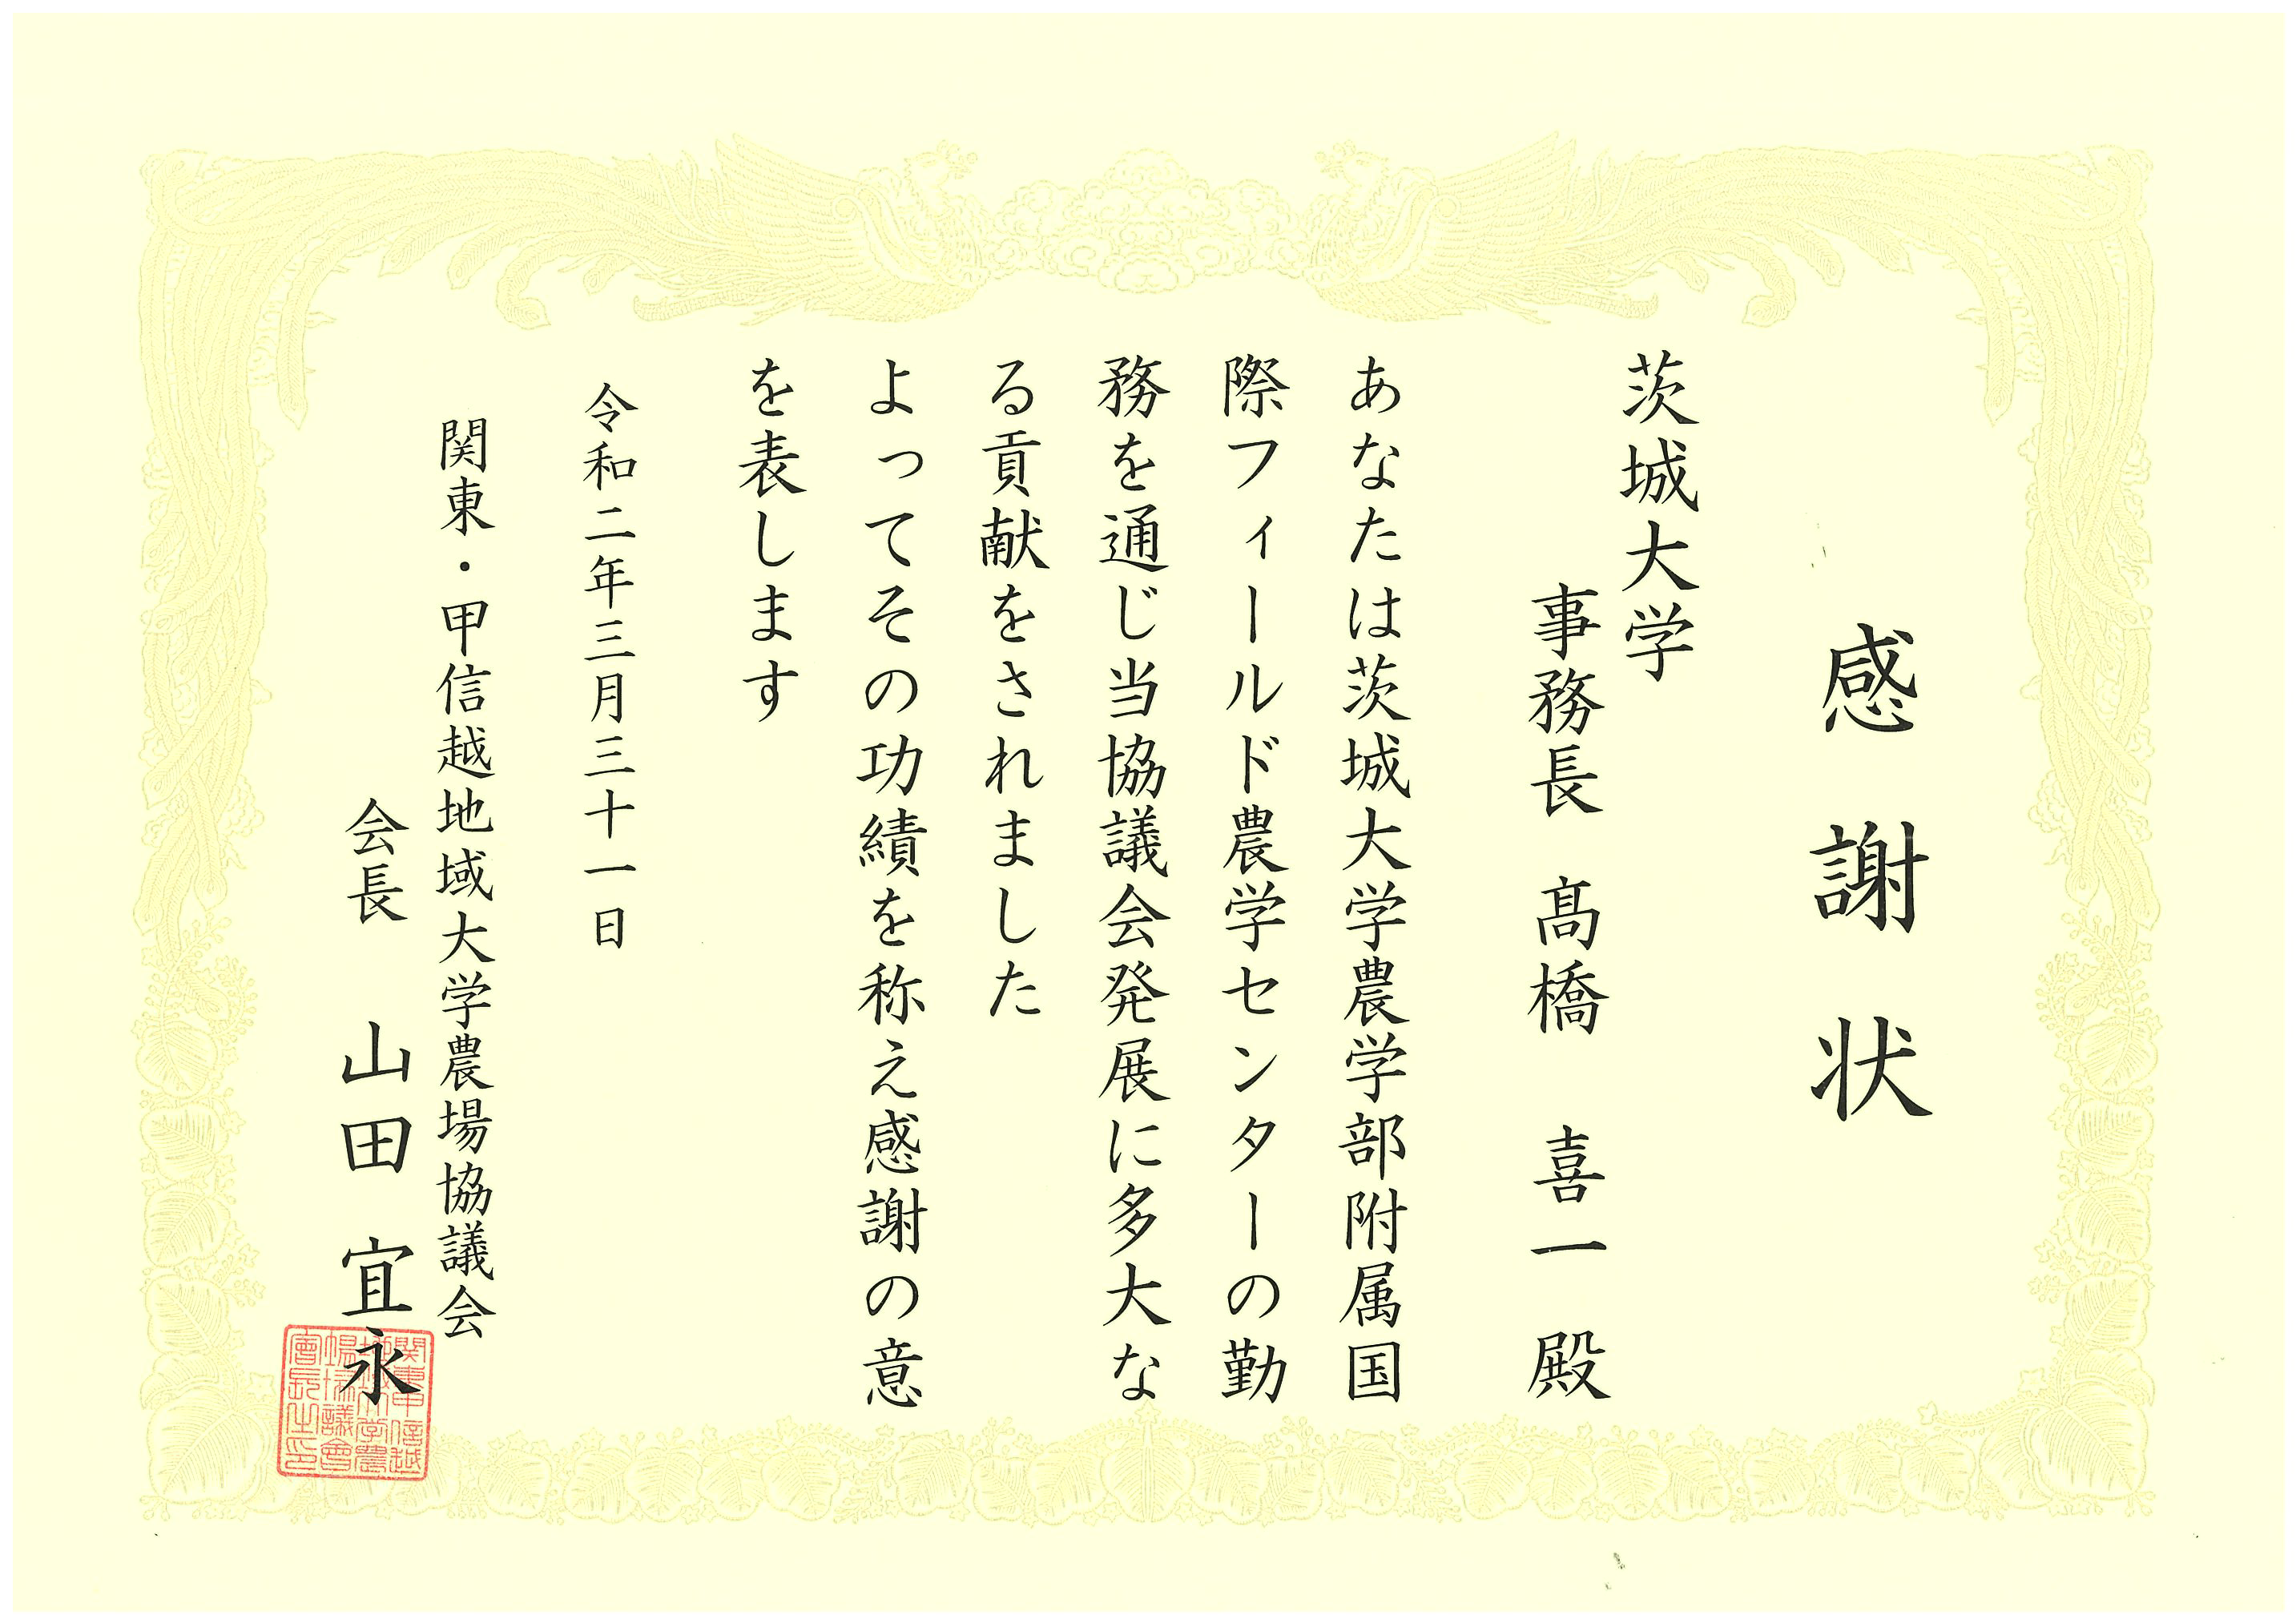 感謝状
茨城大学
事務長 髙橋 喜一 殿
あなたは茨城大学農学部附属国
際フィールド農学センターの勤
務を通じ当協議会発展に多大な
る貢献をされました
よってその功績を称え感謝の意
を表します
令和二年三月三十一日
関東・甲信越地域大学農場協議会
会長 山田 宜永
関東甲信越
地域大学農
場協議會
會長之印